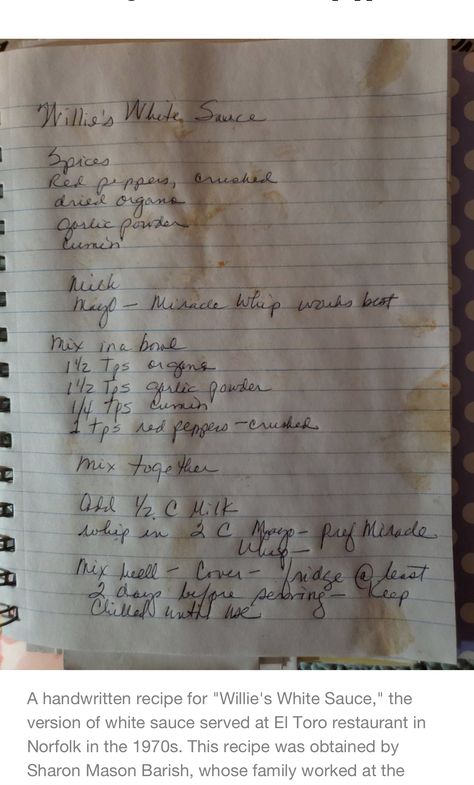 Willie's White Sauce
Spices
Red peppers, crushed
dried organo
garlic powder
cumin
Milk
Mayo - Miracle Whip works best
Mix in a bowl
1 1/2 Tps organo
1 1/2 Tps garlic powder
1/4 tps cumin
1 tps red peppers - crushed
Mix together
Add 1/2 C Milk
whip in 2 C Mayo - pref Miracle
Whip -
Mix well - Cover - fridge @ least
2 days before serving - Keep
Chilled until use
A handwritten recipe for "Willie's White Sauce," the
version of white sauce served at El Toro restaurant in
Norfolk in the 1970s. This recipe was obtained by
Sharon Mason Barish, whose family worked at the